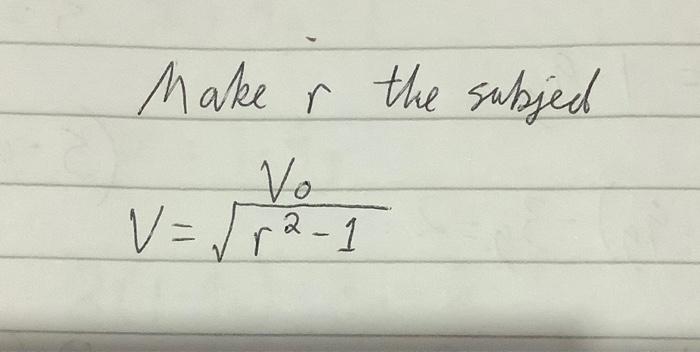 Make r the subject
V = V₀ / √(r² - 1)